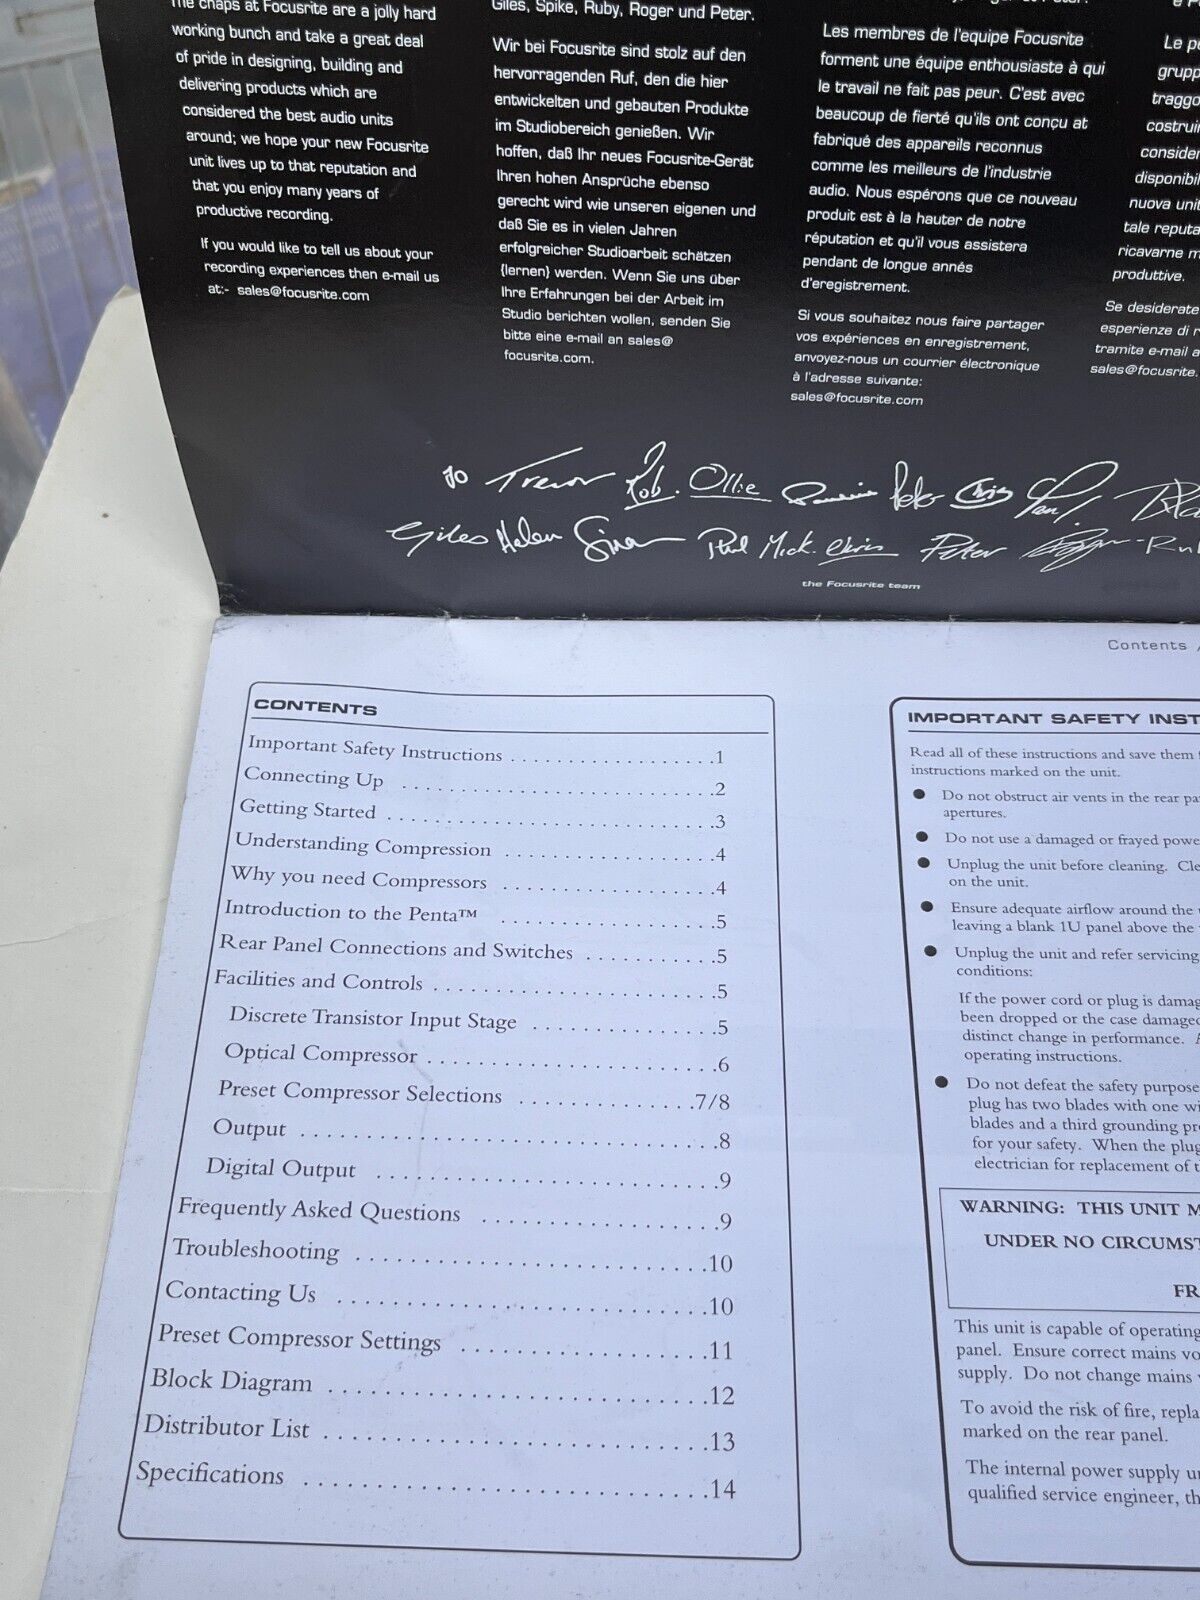 The chaps at Focusrite are a jolly hard
working bunch and take a great deal
of pride in designing, building and
delivering products which are
considered the best audio units
around; we hope your new Focusrite
unit lives up to that reputation and
that you enjoy many years of
productive recording.
If you would like to tell us about your
recording experiences then e-mail us
at:- sales@focusrite.com
Giles, Spike, Ruby, Roger und Peter.
Wir bei Focusrite sind stolz auf den
hervorragenden Ruf, den die hier
entwickelten und gebauten Produkte
im Studiobereich genießen. Wir
hoffen, daß Ihr neues Focusrite-Gerät
Ihren hohen Ansprüche ebenso
gerecht wird wie unseren eigenen und
daß Sie es in vielen Jahren
erfolgreicher Studioarbeit schätzen
(lernen) werden. Wenn Sie uns über
Ihre Erfahrungen bei der Arbeit im
Studio berichten wollen, senden Sie
bitte eine e-mail an sales@
focusrite.com.
Les membres de l'equipe Focusrite
forment une équipe enthousiaste à qui
le travail ne fait pas peur. C'est avec
beaucoup de fierté qu'ils ont conçu at
fabriqué des appareils reconnus
comme les meilleurs de l'industrie
audio. Nous espérons que ce nouveau
produit est à la hauter de notre
réputation et qu'il vous assistera
pendant de longue annés
d'eregistrement.
Si vous souhaitez nous faire partager
vos expériences en enregistrement,
anvoyez-nous un courrier électronique
à l'adresse suivante:
sales@focusrite.com
Le
grupp
traggo
costrui
consider
disponibil
nuova unit
tale reputa
ricavarne m
produttive.
Se desiderate
esperienze di r
tramite e-mail a
sales@focusrite.
Jo Trevor Rob. Ollie Peter Chris
Giles Helen Simon Phil Mick. Chris Peter
the Focusrite team
Contents
CONTENTS
Important Safety Instructions . . . . . . . . . . . . . . . . . . .1
Connecting Up . . . . . . . . . . . . . . . . . . . . . . . . . . . .2
Getting Started . . . . . . . . . . . . . . . . . . . . . . . . . . . . .3
Understanding Compression . . . . . . . . . . . . . . . . . . .4
Why you need Compressors . . . . . . . . . . . . . . . . . . .4
Introduction to the Penta™ . . . . . . . . . . . . . . . . . . .5
Rear Panel Connections and Switches . . . . . . . . . . .5
Facilities and Controls . . . . . . . . . . . . . . . . . . . . . . . .5
Discrete Transistor Input Stage . . . . . . . . . . . . . . .5
Optical Compressor . . . . . . . . . . . . . . . . . . . . . . . .6
Preset Compressor Selections . . . . . . . . . . . . . .7/8
Output . . . . . . . . . . . . . . . . . . . . . . . . . . . . . . . . .8
Digital Output . . . . . . . . . . . . . . . . . . . . . . . . . . .9
Frequently Asked Questions . . . . . . . . . . . . . . . . . .9
Troubleshooting . . . . . . . . . . . . . . . . . . . . . . . . . .10
Contacting Us . . . . . . . . . . . . . . . . . . . . . . . . . . .10
Preset Compressor Settings . . . . . . . . . . . . . . . . . .11
Block Diagram . . . . . . . . . . . . . . . . . . . . . . . . . . . .12
Distributor List . . . . . . . . . . . . . . . . . . . . . . . . . . . .13
Specifications . . . . . . . . . . . . . . . . . . . . . . . . . . . . .14
IMPORTANT SAFETY INST
Read all of these instructions and save them
instructions marked on the unit.
● Do not obstruct air vents in the rear pa
apertures.
● Do not use a damaged or frayed powe
● Unplug the unit before cleaning. Cle
on the unit.
● Ensure adequate airflow around the
leaving a blank 1U panel above the
● Unplug the unit and refer servicing
conditions:
If the power cord or plug is damag
been dropped or the case damaged
distinct change in performance.
operating instructions.
● Do not defeat the safety purpose
plug has two blades with one wi
blades and a third grounding pr
for your safety. When the plug
electrician for replacement of t
WARNING: THIS UNIT M
UNDER NO CIRCUMST
FR
This unit is capable of operating
panel. Ensure correct mains vo
supply. Do not change mains
To avoid the risk of fire, repla
marked on the rear panel.
The internal power supply u
qualified service engineer, th